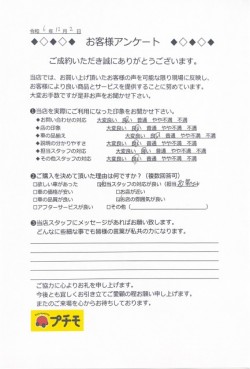 令和 年 月 日
◆◇◆◇◆ お客様アンケート ◆◇◆◇◆
ご成約いただき誠にありがとうございます。
当店では、お買い上げ頂いたお客様の声を可能な限り現場に反映し、
お客様により良い商品とサービスを提供することに努めています。
大変お手数ですが是非お声をお聞かせ下さい。
❶当店を実際にご利用になった印象をお聞かせ下さい。
◆お問い合わせの対応 大変良い 良い 普通 やや不満 不満
◆店の印象 大変良い 良い 普通 やや不満 不満
◆車の品揃え 大変良い 良い 普通 やや不満 不満
◆説明の分かりやすさ 大変良い 良い 普通 やや不満 不満
◆担当スタッフの対応 大変良い 良い 普通 やや不満 不満
◆その他スタッフの対応 大変良い 良い 普通 やや不満 不満
❷ご購入を決めて頂いた理由は何ですか?(複数回答可)
□欲しい車があった □担当スタッフの対応が良い(担当
□車の価格が安い □お店が近い
□車の品質が良い □お店の雰囲気が良い
□アフターサービスが良い □その他(
❸当店スタッフにメッセージがあればお願い致します。
どんなに些細な事でも皆様の言葉が私共の力になります。
ご協力に心よりお礼を申し上げます。
今後とも宜しくお引き立てご愛顧の程お願い申し上げます。
またのご来場を心からお待ちしております。
プチモ